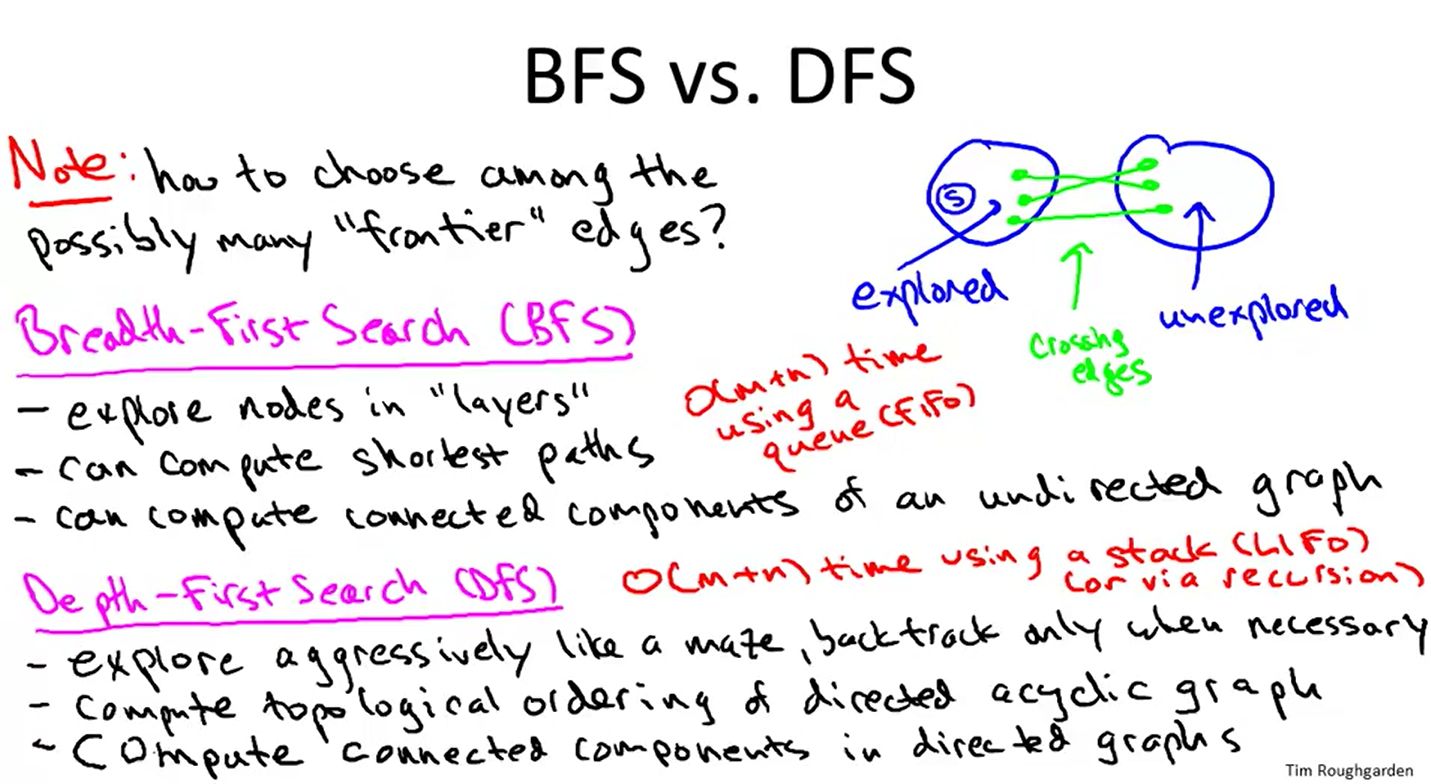 BFS vs. DFS
Note: how to choose among the
possibly many "frontier" edges?
S
explored
crossing
edges
unexplored
Breadth-First Search (BFS)
- explore nodes in "layers"
- can compute shortest paths
- can compute connected components of an undirected graph
O(m+n) time
using a
queue (FIFO)
Depth-First Search (DFS)
O(m+n) time using a stack (LIFO)
(or via recursion)
- explore aggressively like a maze, backtrack only when necessary
- compute topological ordering of directed acyclic graph
- compute connected components in directed graphs
Tim Roughgarden